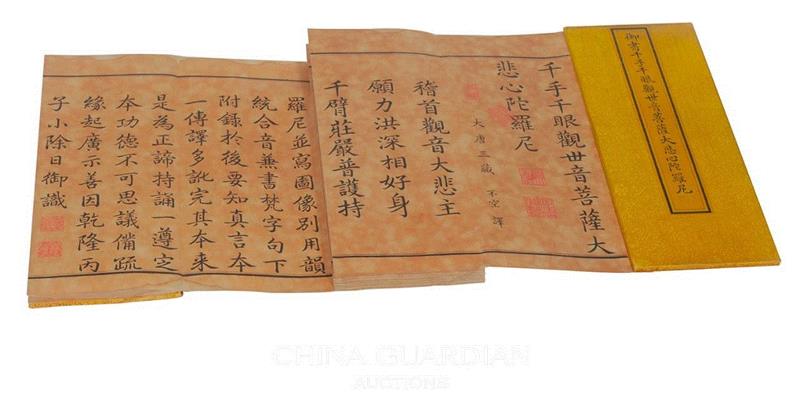 御書千手千眼觀世音菩薩大悲心陀羅尼
千手千眼觀世音菩薩大
悲心陀羅尼
大唐三藏 不空 譯
稽首觀音大悲主
願力洪深相好身
千臂莊嚴普護持
羅尼並寫圖像別用韻
統合音兼書梵字句下
附錄於後要知真言本
一傳譯多訛完其本来
是為正諦持誦一遵定
本功德不可思議備疏
緣起廣示善因乾隆丙
子小除日御識
CHINA GUARDIAN
AUCTIONS